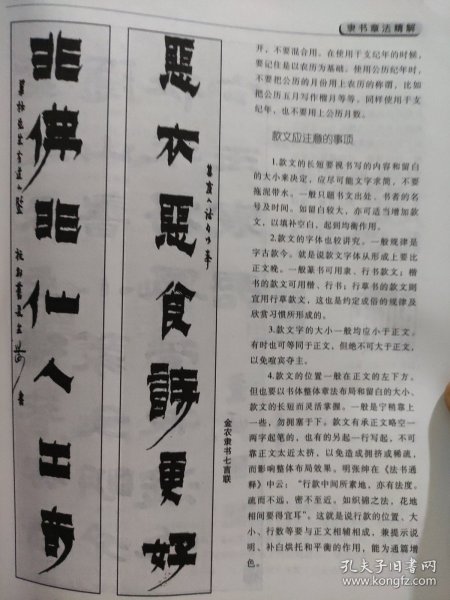 隶书章法精解
开，不要混合用。在使用干支纪年的时候，
要记住是以农历为基础。使用公历纪年时，
不要把公历的月份用上农历的称谓，比如
把公历五月写作榴月等等。同样使用干支
纪年，也不要用上公历月数。
款文应注意的事项
1.款文的长短要视书写的内容和留白
的大小来决定，应尽可能文字求简，不要
拖泥带水。一般只题书文出处、书者的名
号及时间。如留白较大，亦可适当增加款
文，以填补空白，起到均衡作用。
2.款文的字体也较讲究。一般规律是
字古款今。就是说款文字体从形成上要比
正文晚。一般篆书可用隶、行书款文；楷
书的款文可用楷、行书；行草书的款文则
宜用行草款文，这也是约定成俗的规律及
欣赏习惯所形成的。
3.款文字的大小一般均应小于正文。
有时也可等同于正文，但绝不可大于正文，
以免喧宾夺主。
4.款文的位置一般在正文的左下方。
但也要以书体整体章法布局和留白的大小、
款文的长短而灵活掌握。一般是宁稍靠上
一些，勿拥塞于下。款文有承正文略空一
两字起笔的，也有的另起一行写起，不可
靠正文太近太挤，以免造成拥挤或稀疏，
而影响整体布局效果。明张绅在《法书通
释》中云：“行款中间所素地，亦有法度。
疏而不远，密不至近。如织锦之法，花地
相间要得宜耳”。这就是说行款的位置、大
小、行数等要与正文相辅相成，兼提示说
明、补白烘托和平衡的作用，能为通篇增
色。
恶衣恶食詩更好
非佛非仙人出奇
金农隶书七言联
孔夫子旧书网